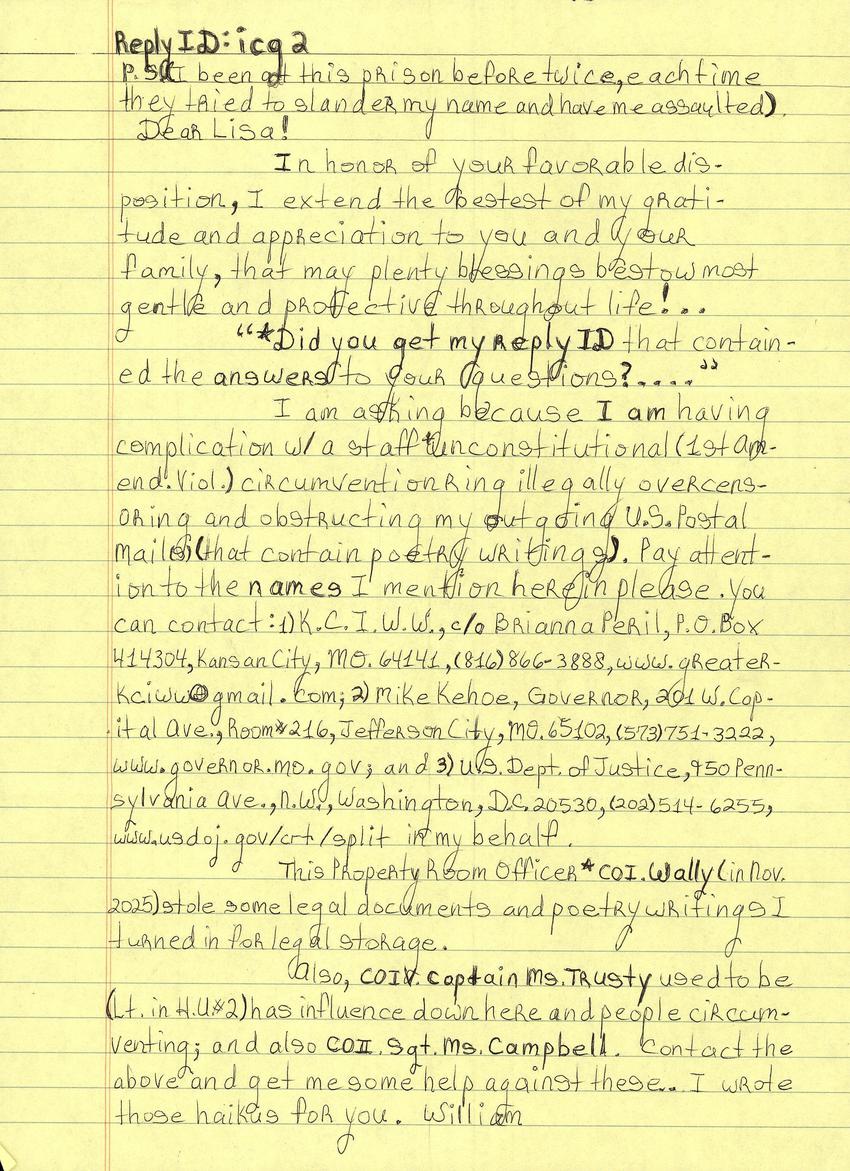 Reply ID: icg 2
P.S. (I been at this prison before twice, each time
they tried to slander my name and have me assaulted).
Dear Lisa!
In honor of your favorable dis-
position, I extend the bestest of my grati-
tude and appreciation to you and your
family, that may plenty blessings bestow most
gentle and protective throughout life!...
"*Did you get my reply ID that contain-
ed the answers to your questions?...."
I am asking because I am having
complication w/ a staff unconstitutional (1st Am-
end. Viol.) circumvention ring illegally overcens-
oring and obstructing my outgoing U.S. Postal
mails (that contain poetry writings). Pay attent-
ion to the names I mention herein please. You
can contact: 1) K.C.I.W.W., c/o Brianna Peril, P.O. Box
414304, Kansan City, MO. 64141, (816) 866-3888, www.greater-
kciww@gmail.com; 2) Mike Kehoe, Governor, 201 W. Cap-
ital Ave., Room #216, Jefferson City, MO. 65102, (573) 751-3222,
www.governor.mo.gov; and 3) U.S. Dept. of Justice, 950 Penn-
sylvania Ave., N.W., Washington, D.C. 20530, (202) 514-6255,
www.usdoj.gov/crt/split in my behalf.
This Property Room Officer *COI. Wally (in Nov.
2025) stole some legal documents and poetry writings I
turned in for legal storage.
Also, COIV. Captain Ms. Trusty used to be
(Lt. in H.U#2) has influence down here and people circum-
venting; and also COII. Sgt. Ms. Campbell. Contact the
above and get me some help against these... I wrote
those haikus for you. William